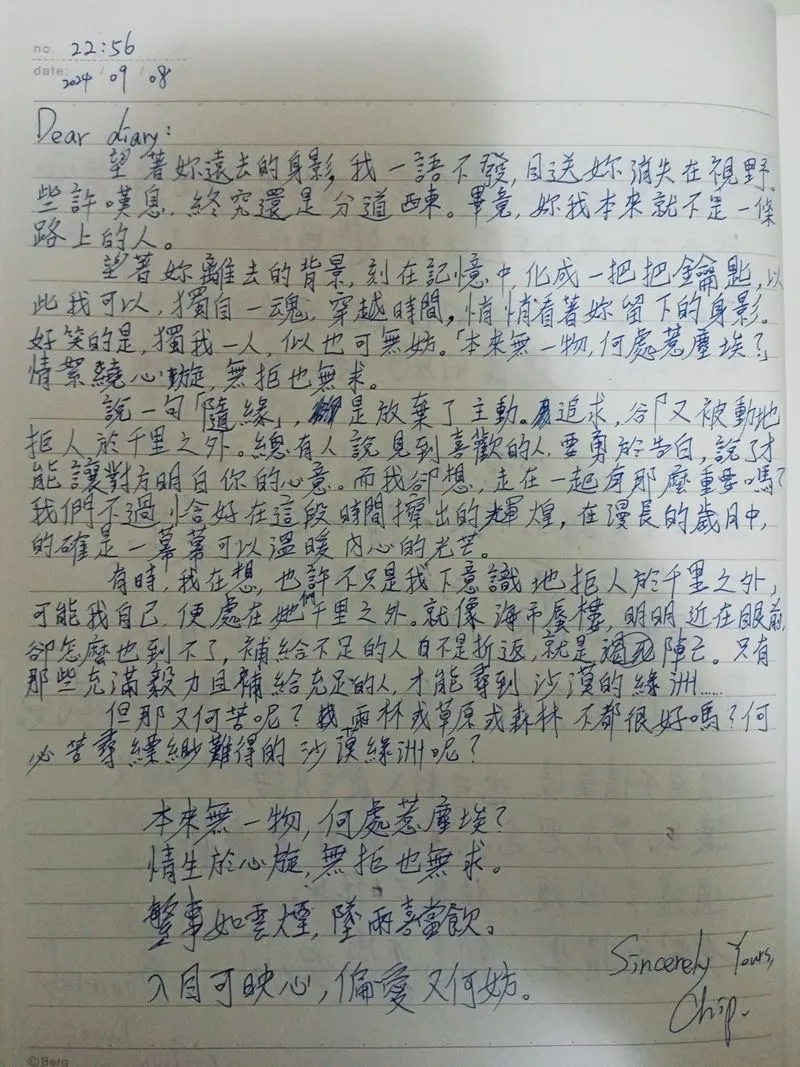 no. 22:56
date: 2024 / 09 / 08
Dear diary:
望著妳遠去的身影,我一語不發,目送妳消失在視野。
些許嘆息,終究還是分道西東。畢竟,妳我本來就不是一條
路上的人。
望著妳離去的背景,刻在記憶中,化成一把把鑰匙,以
此我可以,獨自一魂,穿越時間,悄悄看著妳留下的身影。
好笑的是,獨我一人,似也可無妨。「本來無一物,何處惹塵埃?」
情絮繞心旋,無拒也無求。
說一句「隨緣」,是放棄了主動。追求,卻又被動地
拒人於千里之外。總有人說見到喜歡的人,要勇於告白,說了才
能讓對方明白你的心意。而我卻想,走在一起有那麼重要嗎?
我們不過恰好在這段時間擦出的輝煌,在漫長的歲月中,
的確是一幕幕可以溫暖內心的光芒。
有時,我在想,也許不只是我下意識地拒人於千里之外,
可能我自己,便處在她們千里之外。就像海市蜃樓,明明近在眼前,
卻怎麼也到不了,補給不足的人不是折返,就是渴死陣亡。只有
那些充滿毅力且補給充足的人,才能尋到沙漠的綠洲……
但那又何苦呢?找雨林或草原或森林不都很好嗎?何
必苦尋縹緲難得的沙漠綠洲呢?
本來無一物,何處惹塵埃?
情生於心旋,無拒也無求。
事如雲煙,墜雨喜當飲。
入目可映心,偏愛又何妨。
Sincerely Yours,
Chip.
©Berg